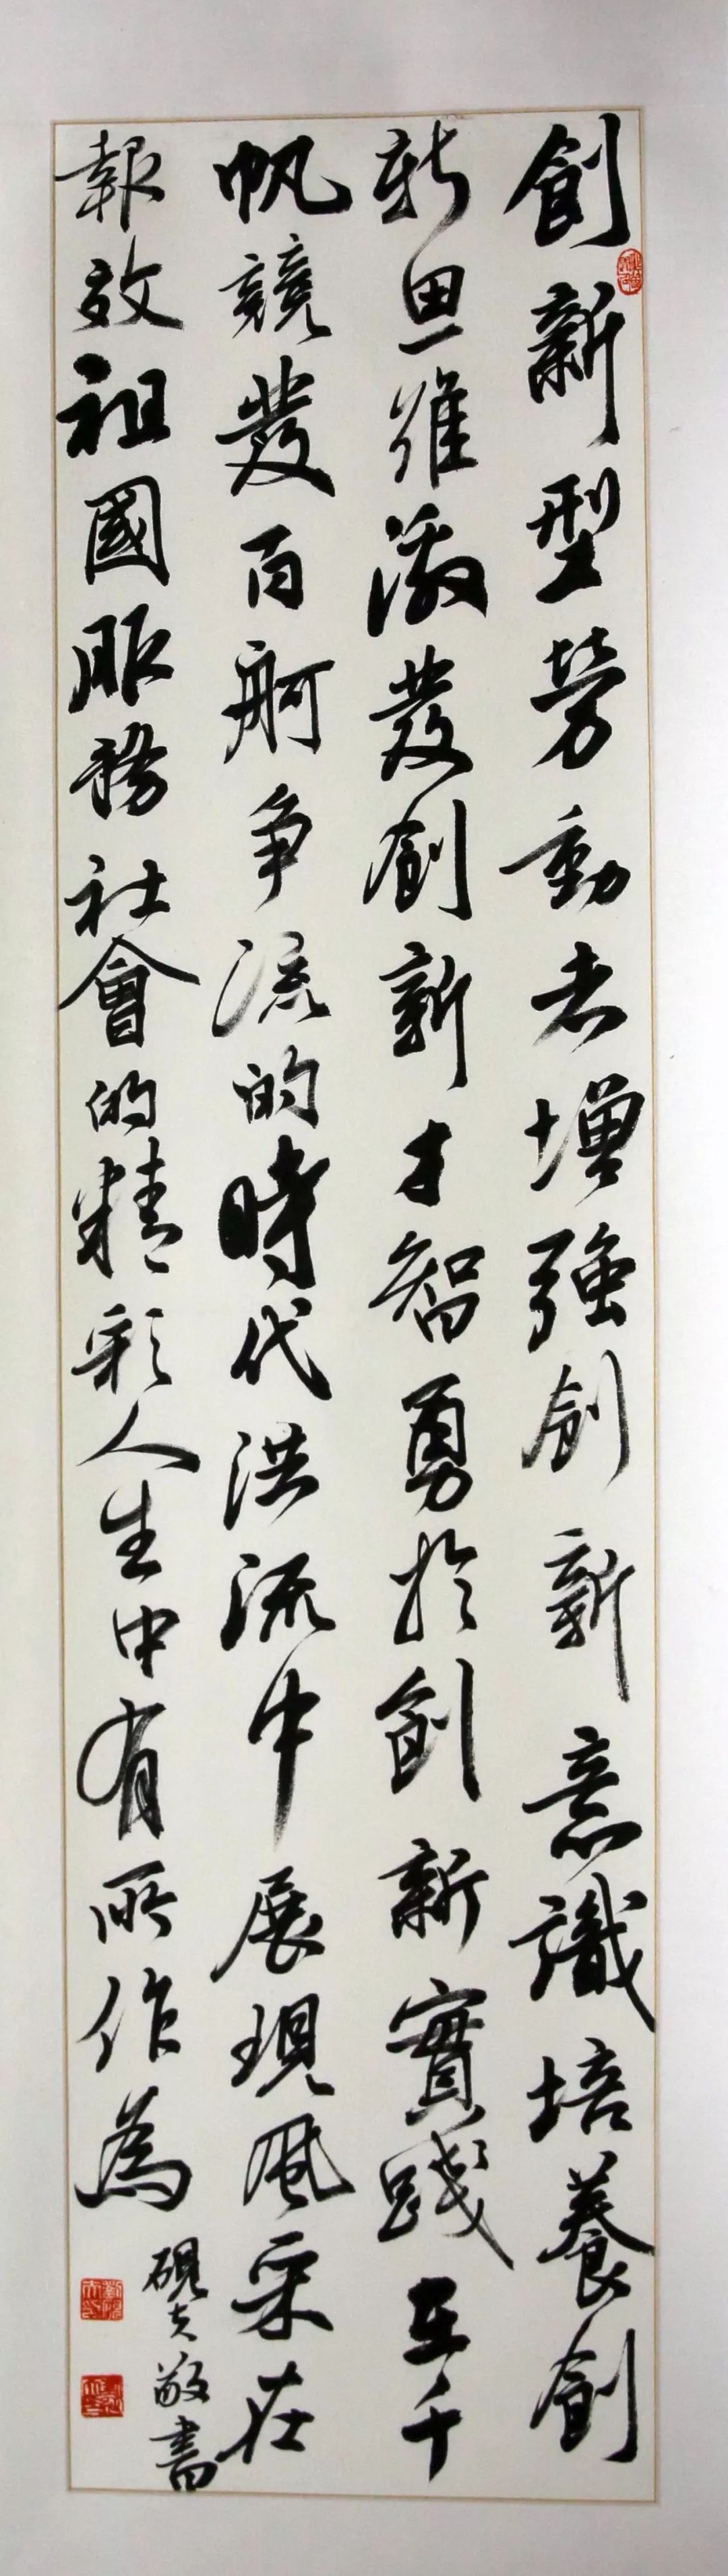 創新型勞動者增強創新意識培養創
新思維激發創新才智勇於創新實踐在千
帆競發百舸争流的時代洪流中展現風采在
報效祖國服務社會的精彩人生中有所作為
硯夫敬書